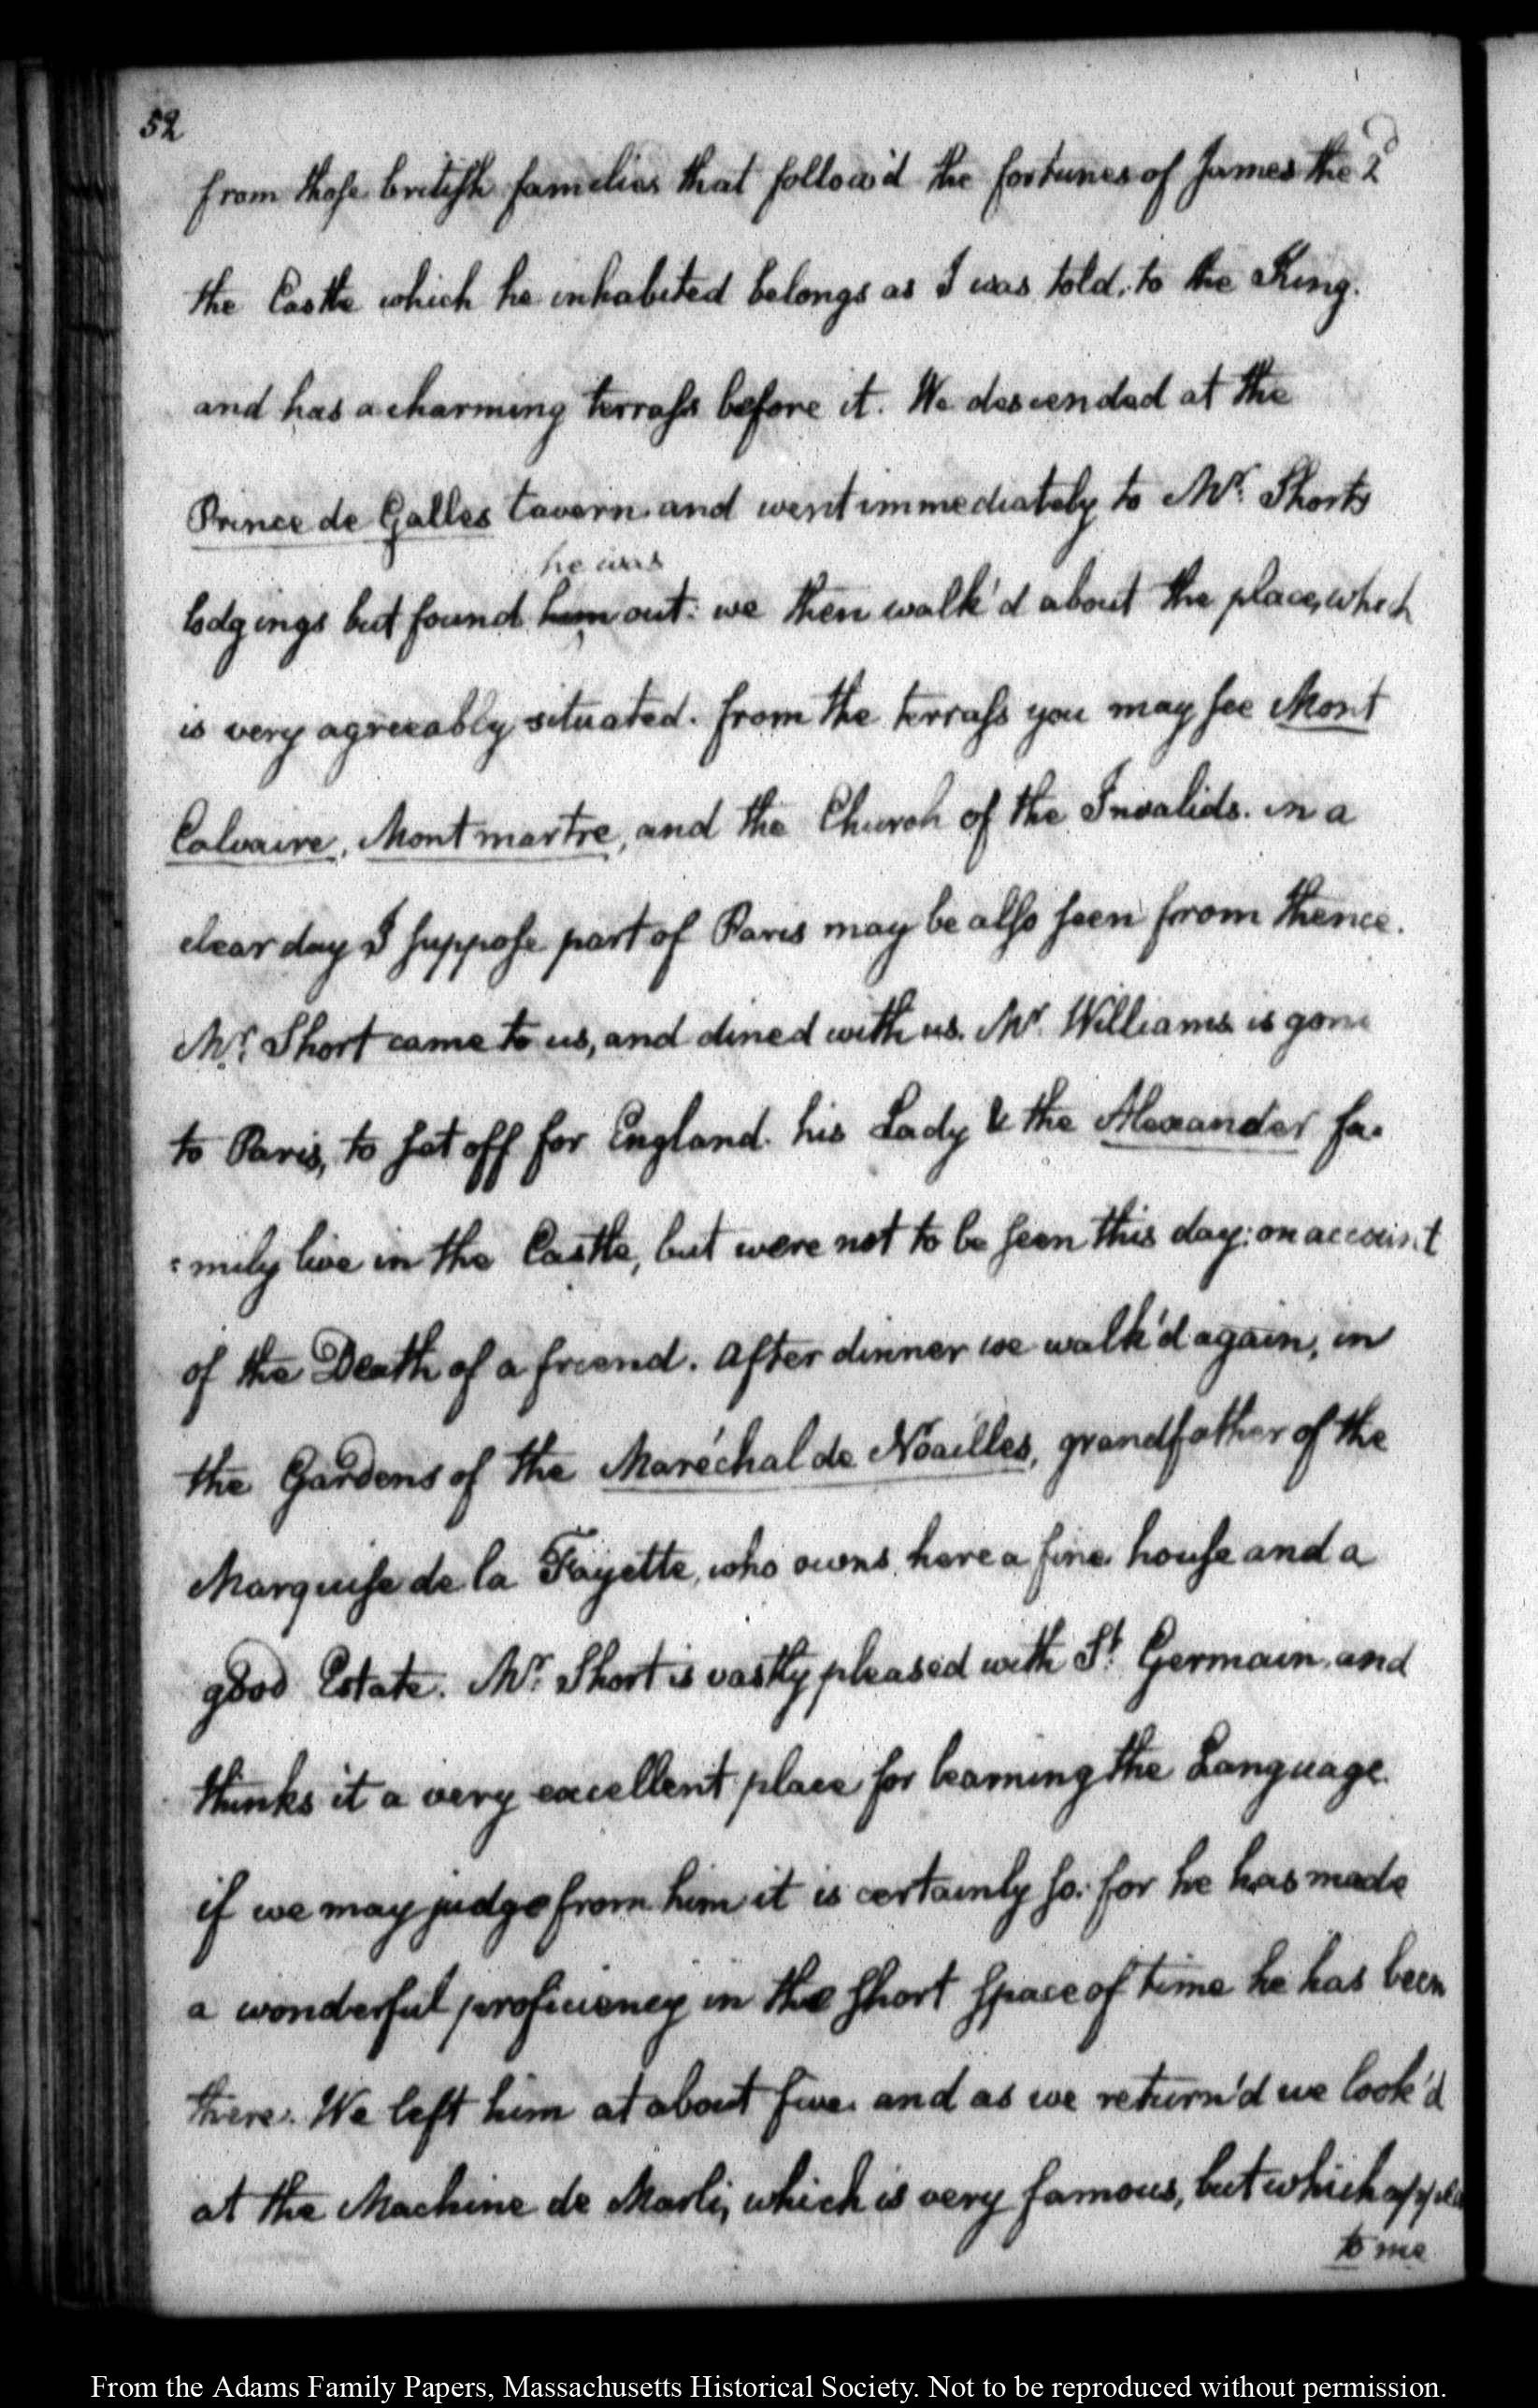 52
from those british families that follow'd the fortunes of James the 2d
the Castle which he inhabited belongs as I was told, to the King.
and has a charming terrass before it. We descended at the
Prince de Galles tavern and went immediately to Mr. Shorts
he was
lodgings but found him out: we then walk'd about the place, which
is very agreeably situated. from the terrass you may see Mont
Calvaire, Montmartre, and the Church of the Invalids. in a
clear day I suppose part of Paris may be also seen from thence.
Mr. Short came to us, and dined with us. Mr. Williams is gone
to Paris, to set off for England. his Lady & the Alexander fa-
:mily live in the Castle, but were not to be seen this day: on account
of the Death of a friend. After dinner we walk'd again, in
the Gardens of the Maréchal de Noailles, grandfather of the
Marquise de la Fayette, who owns here a fine house and a
good Estate. Mr. Short is vastly pleased with St. Germain, and
thinks it a very excellent place for learning the Language.
if we may judge from him it is certainly so: for he has made
a wonderful proficiency in the short space of time he has been
there. We left him at about five and as we return'd we look'd
at the Machine de Marli, which is very famous, but which
to me
From the Adams Family Papers, Massachusetts Historical Society. Not to be reproduced without permission.